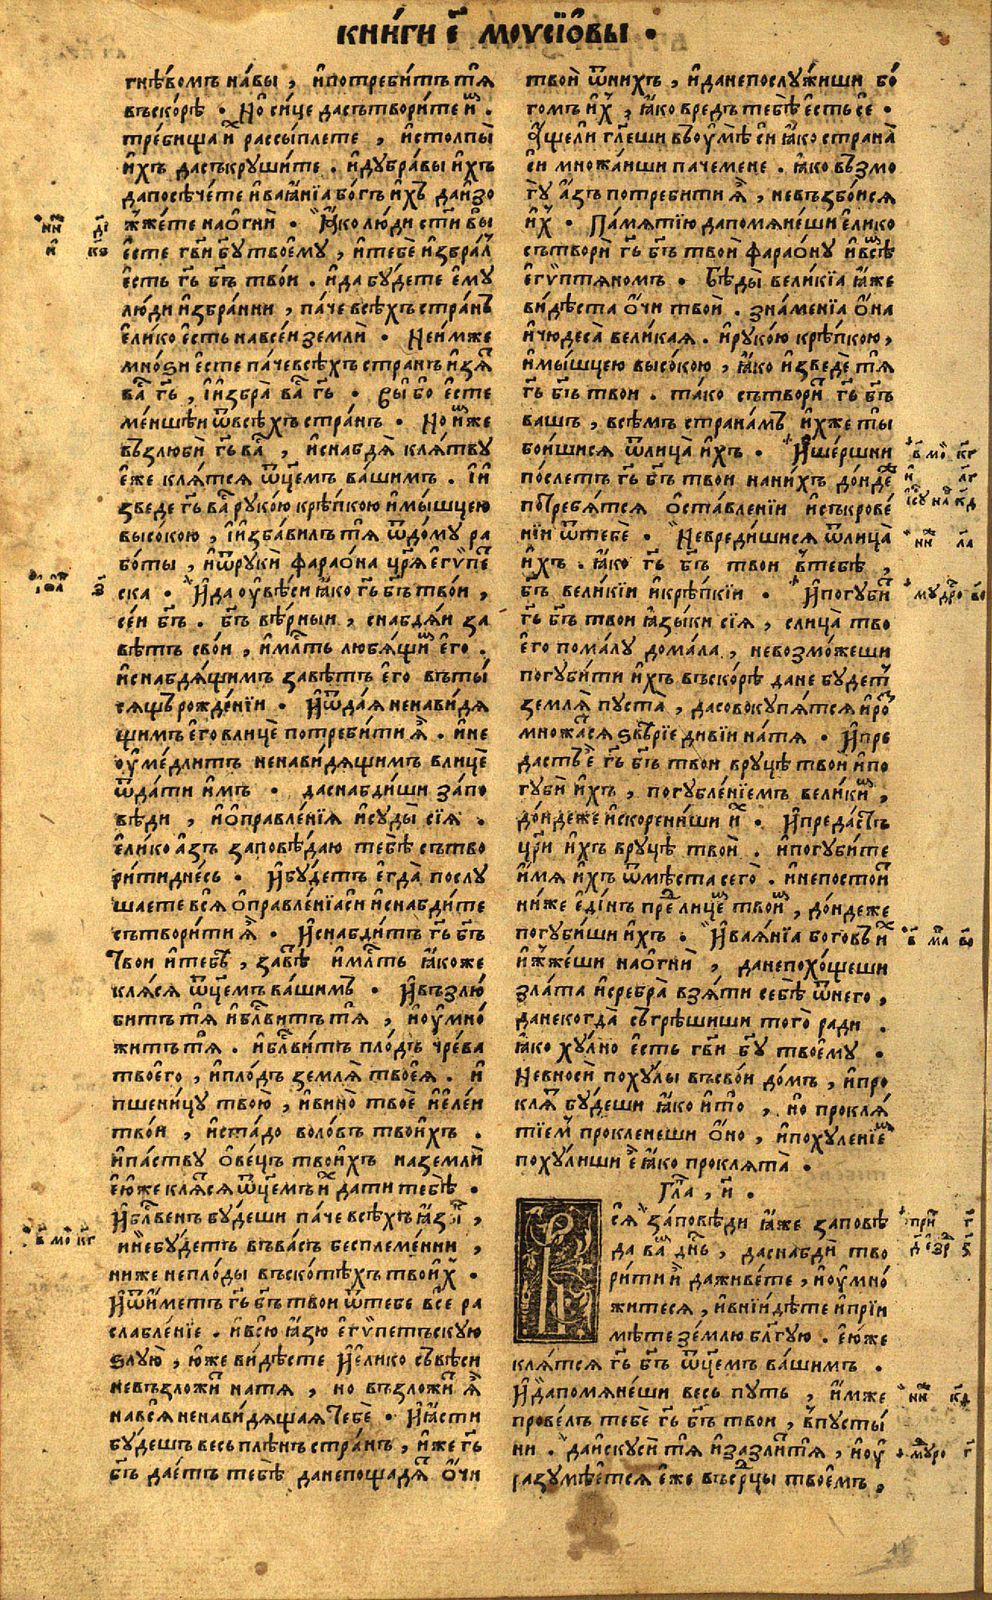 кни́ги є҃ моѵсіѡ҆́вы •
гнѣ́вомъ на́вы , и҆потреби́тъ тѧ̀
въско́рѣ • Но си́це дасътвори́те и҆́мъ .
тре́бища и҆́х рассы́плете , и҆столпы̀
и҆́хъ дасъкруши́те . и҆дубра́вы и҆́хъ
дапосѣче́те и҆ваѧ́нїа бо́гъ и҆́хъ даи҆зо
жже́те наѻ҆гнѝ • Ꙗ҆́ко лю́ди ст҃и вы̀
є҆сте гв҃и бг҃у твоє҆му , и҆тебѐ и҆збра́л
є҆сть гь҃ бг҃ъ тво́и . и҆да бу́дете є҆му
лю́ди и҆збра́нни , па́че всѣ́хъ стра́нъ
є҆ли́ко є҆сть навсе́и землѝ • Не и҆́мже
мно́ѕи є҆сте па́че всѣ́хъ стра́нъ и҆зѧ́т
ва́с гь҃ , і҆и҆збра̀ ва́с гь҃ • Вы́ бо є҆сте
ме́ншѣи ѿвсѣ́хъ стра́нъ • Но и҆́мже
възлюбѝ гь҃ ва́с , и҆снабдѧ̀ клѧ́тву
є҆́же клѧ́тсѧ ѿц҃емъ ва́шимъ . І҆и҆
зведе гь҃ ва́с руко́ю крѣ́пкою и҆мы́шцею
высо́кою , і҆и҆зба́вилъ тѧ̀ ѿдо́му ра
бо́ты , и҆ѿрукѝ фараѡ́на цр҃ѧ̀ є҆гѵ́пе
ска • И҆да ѹ҆вѣ́си ꙗ҆́ко гь҃ бг҃ъ тво́и ,
се́и бг҃ъ . бг҃ъ вѣ́рныи , снабдѧ́и за
вѣ́тъ сво́и , и҆мл҃ть лю́бѧщим є҆го̀ .
и҆снабдѧ́щимъ завѣ́тъ є҆го̀ въты́
сѧщъ рожде́нїи • И҆ѿда́ѧ ненави́дѧ
щимъ є҆го̀ влицѐ потреби́ти ѧ҆̀ . и҆не
ѹ҆ме́длитъ ненави́дѧщимъ влицѐ
ѿда́ти и҆́мъ • даснабди́ши за́по
вѣди , и҆ѡ҆правле́нїѧ и҆суды̀ сїѧ̀ .
є҆ли́ко а҆́зъ заповѣ́даю тебѣ̀ сътво
ри́ти дне́сь • И҆бу́детъ є҆гда̀ послу
шаете всѧ̀ ѡ҆правле́нїа си и҆снабди́те
сътвори́ти ѧ҆̀ • И҆снабди́тъ гь҃ бг҃ъ
Тво́и и҆тебѣ̀ , завѣ́т и҆мл҃ть ꙗ҆́коже
клѧ́сѧ ѿц҃емъ ва́шимъ • И҆възлю́
битъ тѧ̀ и҆бл҃ви́тъ тѧ̀ , и҆ѹ҆мно́
житъ тѧ̀ . и҆бл҃ви́тъ пло́дъ чре́ва
твоє҆го , и҆пло́дъ землѧ̀ твоє҆ѧ . и҆
пшени́цу твою̀ , и҆вино̀ твоѐ и҆є҆ле́и
тво́и , и҆ста́до воло́въ твои҆́хъ .
и҆па́ству ѻ҆ве́цъ твои҆́хъ наземлѝ
є҆ю́же клѧ́сѧ ѿц҃емъ и҆́х да́ти тебѣ̀ •
И҆бл҃ве́нъ бу́деши па́че всѣ́хъ ꙗ҆зы́к ,
и҆не́бу́детъ въва́съ беспле́менни ,
ниже непло́ды въско́тѣхъ твои҆́х •
И҆ѿи҆́метъ гь҃ бг҃ъ тво́и ѿтебѐ всѐ ра
слабле́нїе . и҆всю̀ ꙗ҆́зю є҆гѵ́петъскую
ѕлу́ю , ю҆́же ви́дѣсте И҆є҆ли́ко съвѣ́си
невъзложи́т натѧ̀ , но възложи́т ѧ҆̀
навсѧ̀ ненави́дѧщаѧ Тебѐ • И҆ꙗ҆́сти
бу́дешъ весь плѣ́нъ стра́нъ , и҆́же гь҃
бг҃ъ дае́тъ тебѣ̀ данепощадѧ́т ѻ҆́чи
твои ѿни́хъ , и҆данепослу́жиши бо́
гомъ и҆́х , ꙗ҆́ко вре́дъ тебѣ̀ є҆сть се •
А҆щели гл҃еши въѹ҆мѣ̀ си ꙗ҆́ко страна̀
си мно́жаиши па́че мене . ка́ко възмо
гу̀ а҆́зъ потреби́ти ѧ҆̀ , невъзбо́исѧ
и҆́х • Па́мѧтїю дапомѧне́ши є҆ли́ко
сътворѝ гь҃ бг҃ъ тво́и фараѡ́ну и҆всѣ́м
є҆гѵ́птѧномъ • Бѣды̀ вели́кїа ꙗ҆́же
ви́дѣста ѻ҆́чи твоѝ . зна́менїа ѻ҆́на
и҆чюдеса̀ вели́каѧ . и҆руко́ю крѣ́пкою ,
и҆мы́шцею высо́кою , ꙗ҆́ко и҆зведѐ тѧ̀
гь҃ бг҃ъ тво́и . та́ко сътворѝ гь҃ бг҃ъ
вашъ , всѣ́мъ страна́мъ и҆́хже ты̀
бои́шисѧ ѿлица̀ и҆́хъ • И҆ше́ршни
по́слетъ гь҃ бг҃ъ тво́и нани́хъ до́нде́же
потребѧ́тсѧ ѡ҆ставле́нїи и҆съкрове́
нїи ѿтебѐ • Невреди́шисѧ ѿлица̀
и҆́хъ . ꙗ҆́ко гь҃ бг҃ъ тво́и втебѣ̀ ,
бг҃ъ вели́кїи и҆крѣ́пкїи • И҆погуби́т
гь҃ бг҃ъ тво́и ꙗ҆зы́ки сїѧ̀ , слица̀ тво
є҆го пома́лу дома́ла , невозмо́жеши
погуби́ти и҆́хъ въско́рѣ да не бу́дет
землѧ̀ пуста̀ , дасовокупѧ́тсѧ и҆ро́
множа́сѧ ѕвѣ́рїе ди́вїи натѧ̀ • И҆пре
да́стъ ѐ гь҃ бг҃ъ тво́и вруцѣ̀ твоѝ и҆по
губѝ и҆́хъ , погубле́нїемъ вели́ким ,
до́ндеже и҆скорени́ши и҆́х • И҆преда́стъ
цр҃и и҆́хъ вруцѣ̀ твоѝ . и҆погуби́те
и҆́мѧ и҆́хъ ѿмѣ́ста сего̀ . и҆непостои́т
ни́же є҆ди́нъ пред лице́м твои́м , до́ндеже
погуби́ши и҆́хъ • И҆ваѧ́нїа бого́въ и҆́х
и҆жже́ши наѻ҆гнѝ , данепохо́щеши
зла́та и҆сребра̀ взѧ́ти себѣ̀ ѿнего̀ ,
данекогда̀ съгрѣши́ши того̀ ради .
ꙗ҆́ко ху́лно є҆сть гв҃и бг҃у твоє҆му •
Невносѝ поху́лы въсво́и до́мъ , и҆про
клѧ́т бу́деши ꙗ҆́ко и҆то̀ , но проклѧ́
тїем проклене́ши ѻ҆́но , и҆похуле́нїем
поху́лиши ѐ ꙗ҆́ко проклѧ́та •
Гла́ , и҃ .
Всѧ̀ за́повѣди ꙗ҆́же запове́
да ва́м дн҃ь , даснабдѝ тво
ри́ти и҆̀ даживе́те , и҆ѹ҆мно́
житесѧ , и҆вни́идѣте и҆прїи
мѣте зе́млю бл҃гую . є҆ю́же
клѧ́тсѧ гь҃ бг҃ъ ѿц҃емъ ва́шимъ .
И҆дапомѧне́ши весь пу́ть , и҆́мже
прове́лъ тебѐ гь҃ бг҃ъ тво́и , впусты́
ни . даи҆скуси́т тѧ̀ и҆зазли́т тѧ̀ , и҆ѹ҆
разумѣ́етсѧ є҆́же въсе́рдцы твоє҆мъ ,